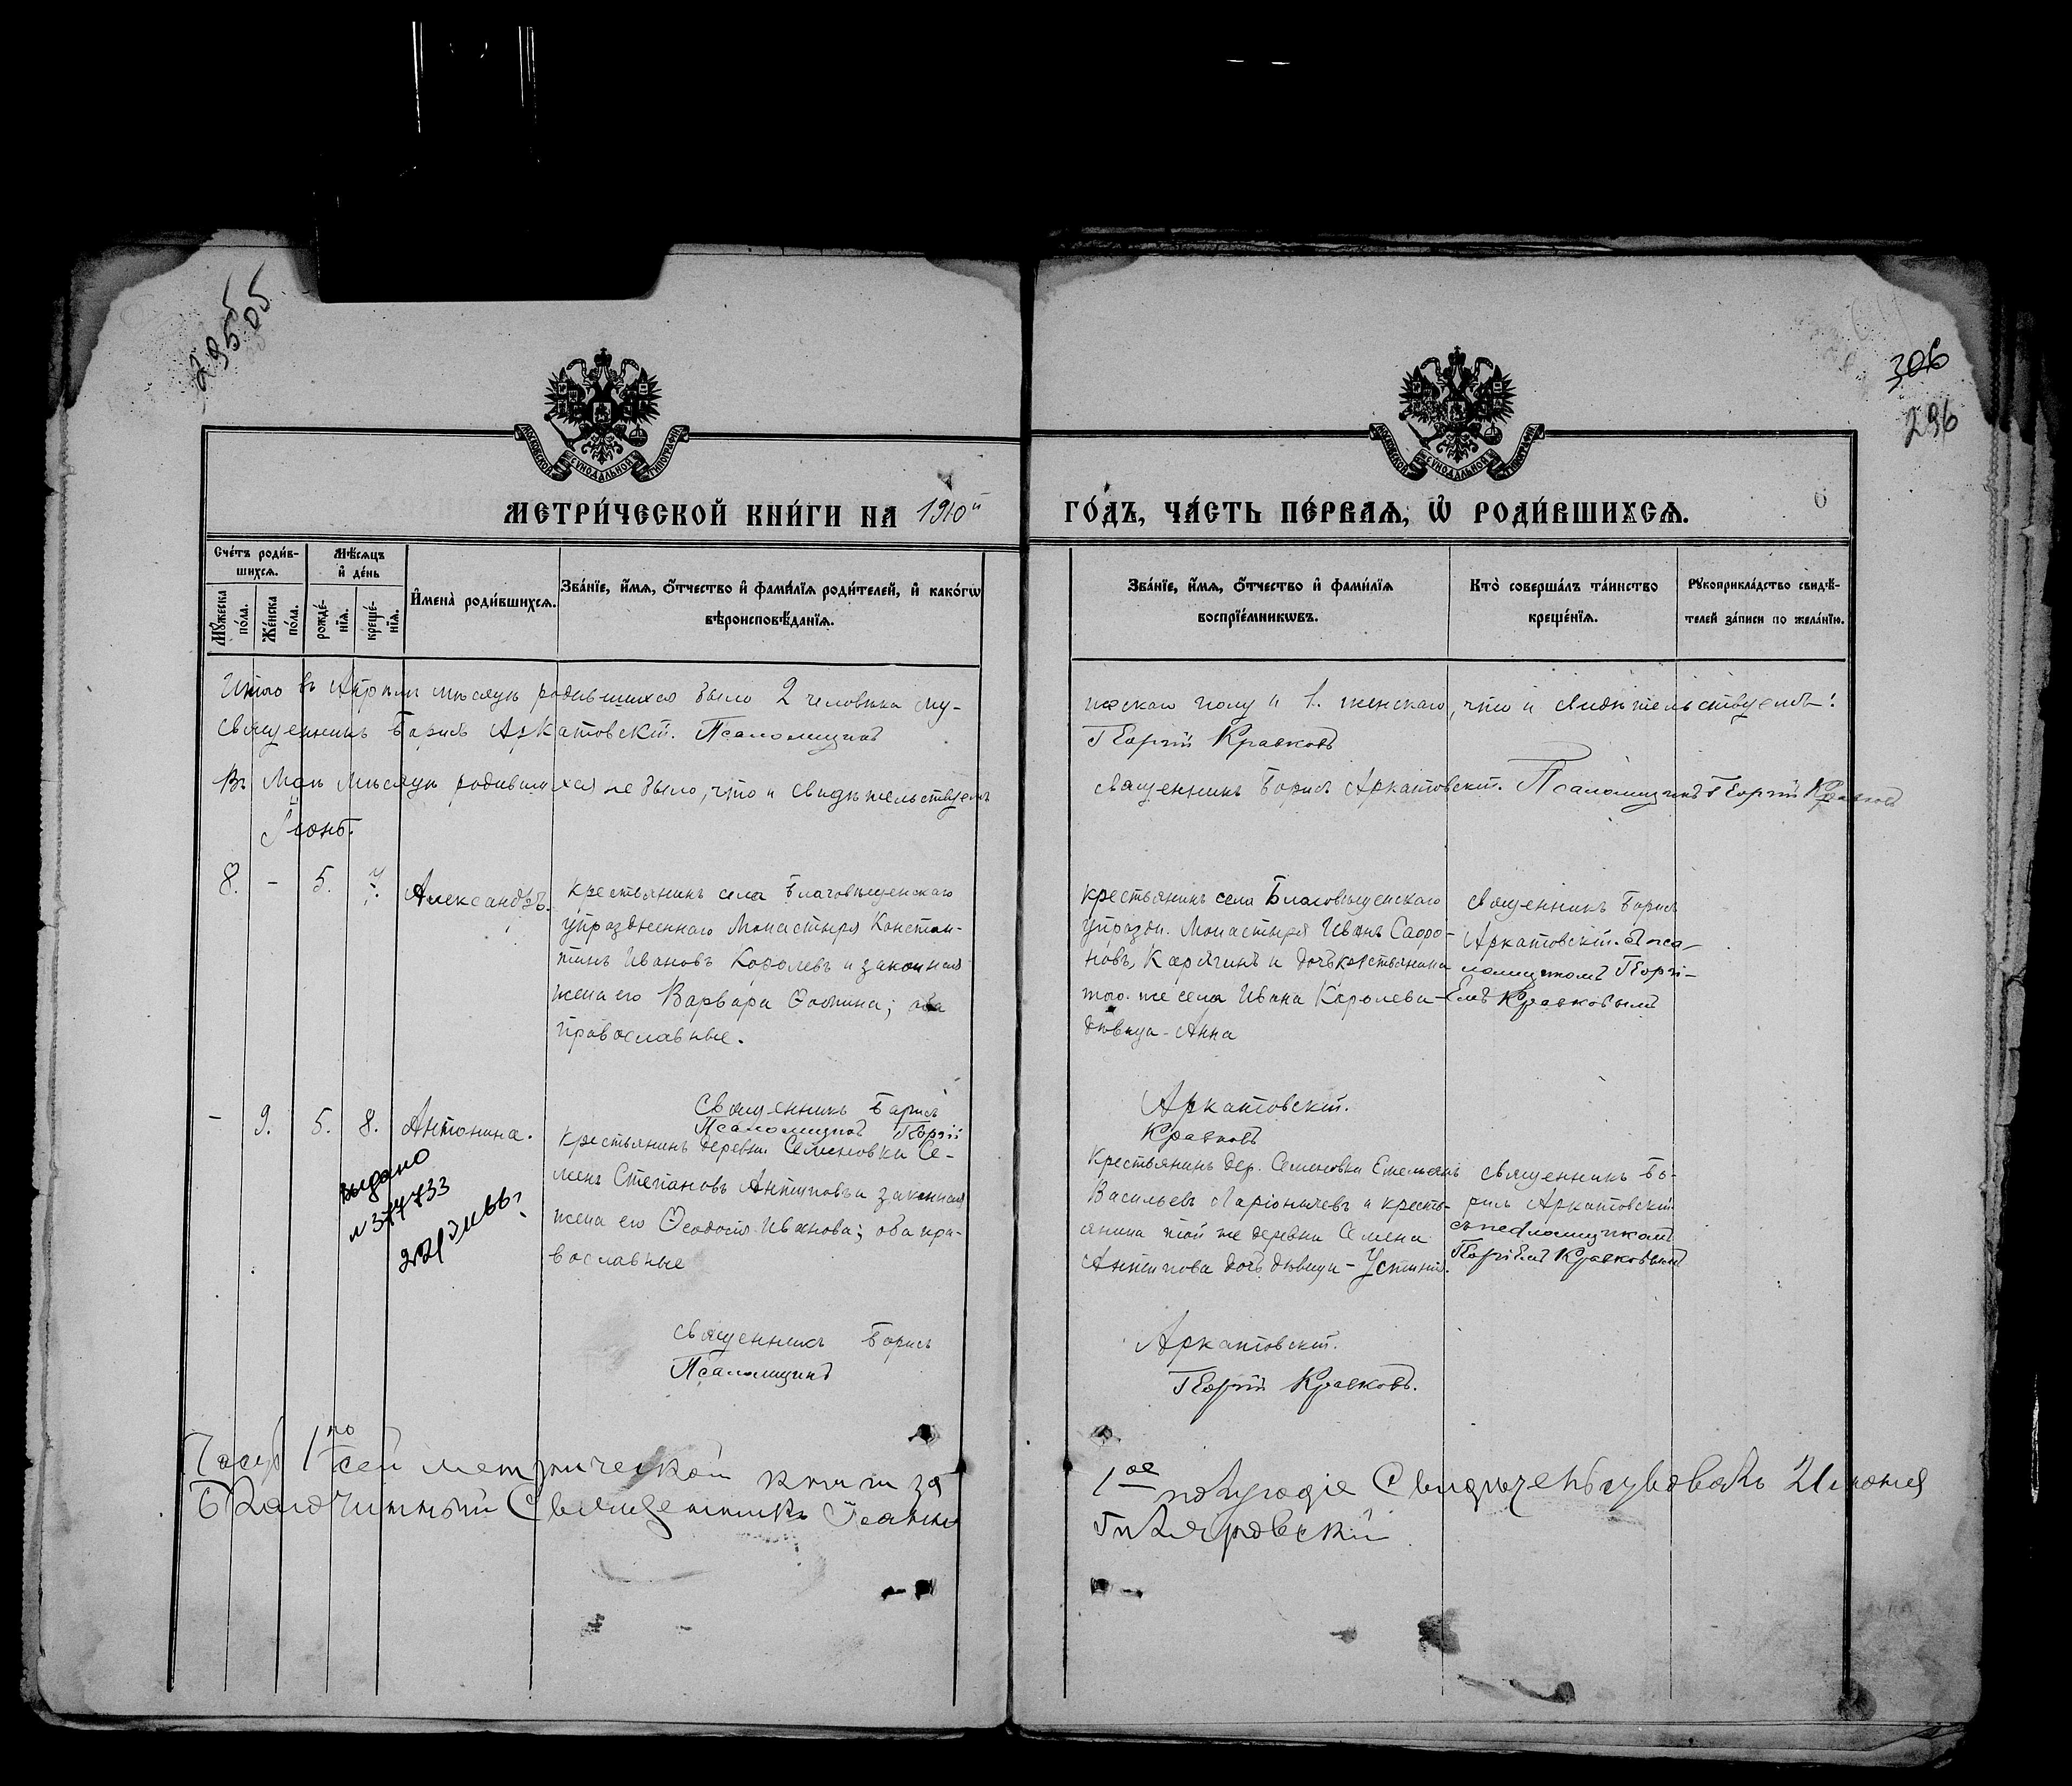 295
305
306
296
МОСКОВСКОЙ СѴНОДАЛЬНОЙ ТИПОГРАФІИ
МОСКОВСКОЙ СѴНОДАЛЬНОЙ ТИПОГРАФІИ
МЕТРИ́ЧЕСКОЙ КНИ́ГИ НА 1910й
ГО́ДЪ, ЧА́СТЬ ПЕ́РВАЯ, Ѡ҆ РОДИ́ВШИХСЯ.
Сче́тъ роди́в-
шихся.
Мѣ́сяцъ
и҆ де́нь
Мꙋ́жеска
по́ла.
Же́нска
по́ла.
рожде́-
нїя.
креще́-
нїя.
И҆мена̀ роди́вшихся.
Зва́нїе, и҆́мя, ѻ҆́тчество и҆ фами́лїя роди́телей, и҆ како́гѡ
вѣроисповѣ́данїя.
Зва́нїе, и҆́мя, ѻ҆́тчество и҆ фами́лїя
воспрїе́мникѡвъ.
Кто̀ соверша́лъ та́инство
креще́нїя.
Рꙋкоприкла́дство свидѣ́-
телей за́писи по жела́нїю.
Итого въ Апрѣлѣ мѣсяцѣ родившихся было 2 человѣка му-
жескаго полу и 1. женскаго, что и свидѣтельствуемъ:
Священникъ Борисъ Аркатовскій. Псаломщикъ
Георгій Кравковъ
Въ Маѣ мѣсяцѣ родившихся не было, что и свидѣтельствуемъ
священникъ Борисъ Аркатовскій. Псаломщикъ Георгій Кравковъ
Іюнь.
8. - 5. 7. Александръ.
Крестьянинъ села Благовѣщенскаго
упраздненнаго Монастыря Констан-
тинъ Ивановъ Королевъ и законная
жена его Варвара Ѳомина; оба
православные.
крестьянинъ села Благовѣщенскаго
упраздн. Монастыря Иванъ Сафро-
новъ, Карягинъ и дочь крестьянина
того-же села Ивана Королева-
дѣвица-Анна
священникъ Борисъ
Аркатовскій съ пса-
ломщикомъ Георгі-
емъ Кравковымъ
Священникъ Борисъ
Аркатовскій.
Псаломщикъ Георгій
Кравковъ
- 9. 5. 8. Антонина.
Крестьянинъ деревни Семеновки Се-
менъ Степановъ Антиповъ и законная
жена его Ѳеодосія Иванова; оба пра-
вославные
Крестьянинъ дер. Семеновки Емельянъ
Васильевъ Ларіонычевъ и кресть-
янина той же деревни Семена
Антипова дочь дѣвица-Устинія.
священникъ Бо-
рисъ Аркатовскій
съ псаломщикомъ
Георгіемъ Кравковымъ
выдано
Священникъ Борисъ
Аркатовскій.
Псаломщикъ
Георгій Кравковъ.
Часть 1ю сей метрической книги за
1ое полугодіе Свидѣтельствовалъ 21 іюня
Благочинный Священникъ Іоаннъ